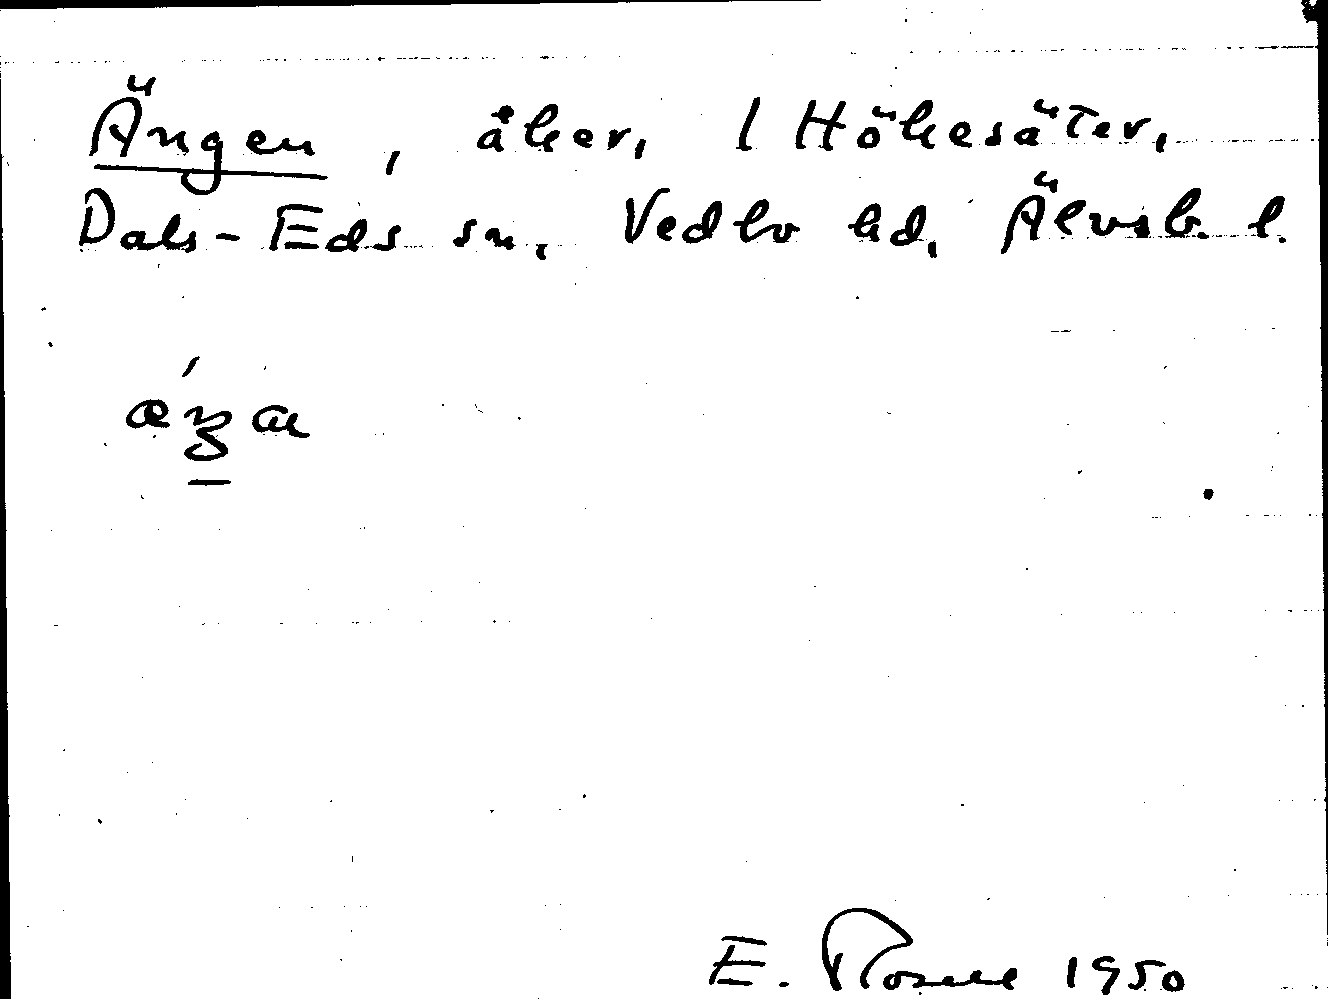 Ängen, åker, 1 Hökesäter,
Dals-Eds sn. Vedbo hd, Älvsb. l.
E. 1950